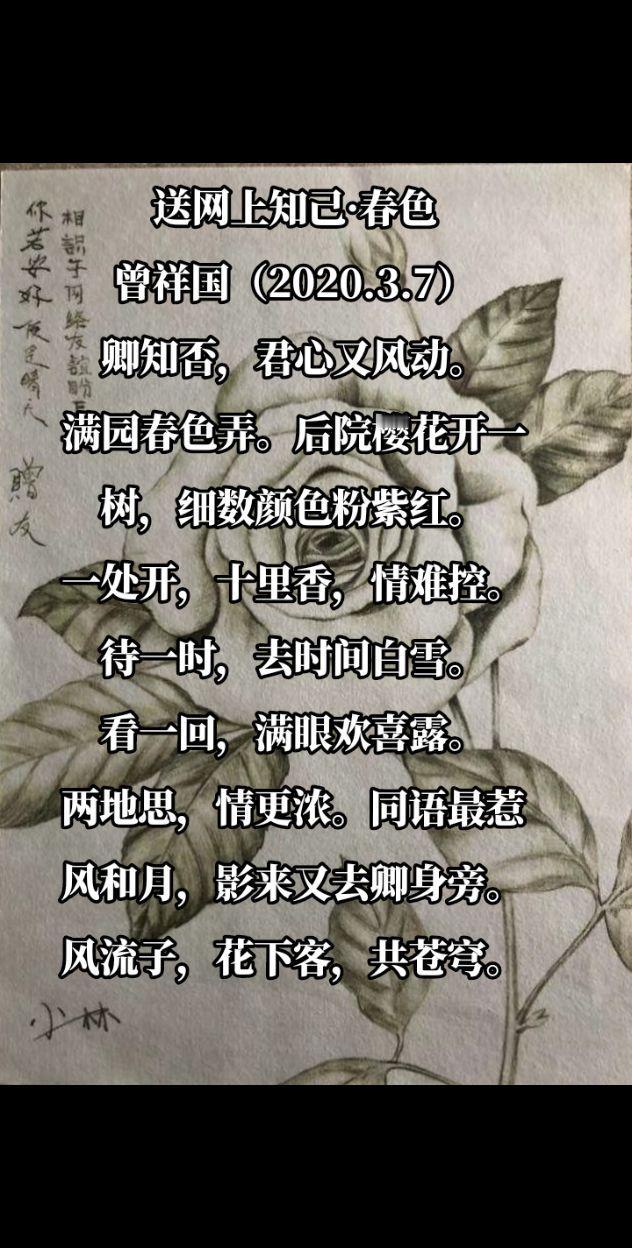 送网上知己·春色
曾祥国（2020.3.7）
卿知否，君心又风动。
满园春色弄。后院樱花开一
树，细数颜色粉紫红。
一处开，十里香，情难控。
待一时，去时间白雪。
看一回，满眼欢喜露。
两地思，情更浓。同语最惹
风和月，影来又去卿身旁。
风流子，花下客，共苍穹。
相识于网络友谊
你若安好便是晴天
赠友
小林